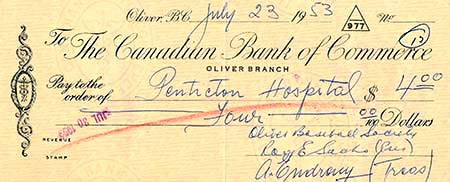 Oliver, B.C. July 23 1953 977 No (13)
To The Canadian Bank of Commerce
OLIVER BRANCH
Pay to the order of Penticton Hospital $ 4.00
Four 00/100 Dollars
JUL 30 1953
Oliver Baseball Society
REVENUE
Roy E Sachs (Pres)
STAMP
A. (Treas)